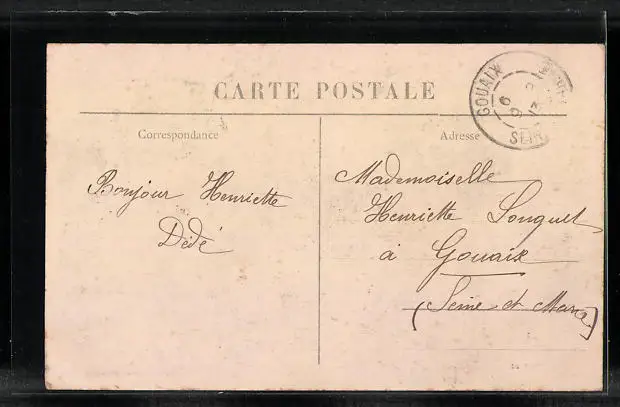 CARTE POSTALE
GOUAIX
SEINE
Correspondance
Adresse
Bonjour Henriette
Dédé
Mademoiselle
Henriette Longuet
à Gouaix
(Seine et Marne)